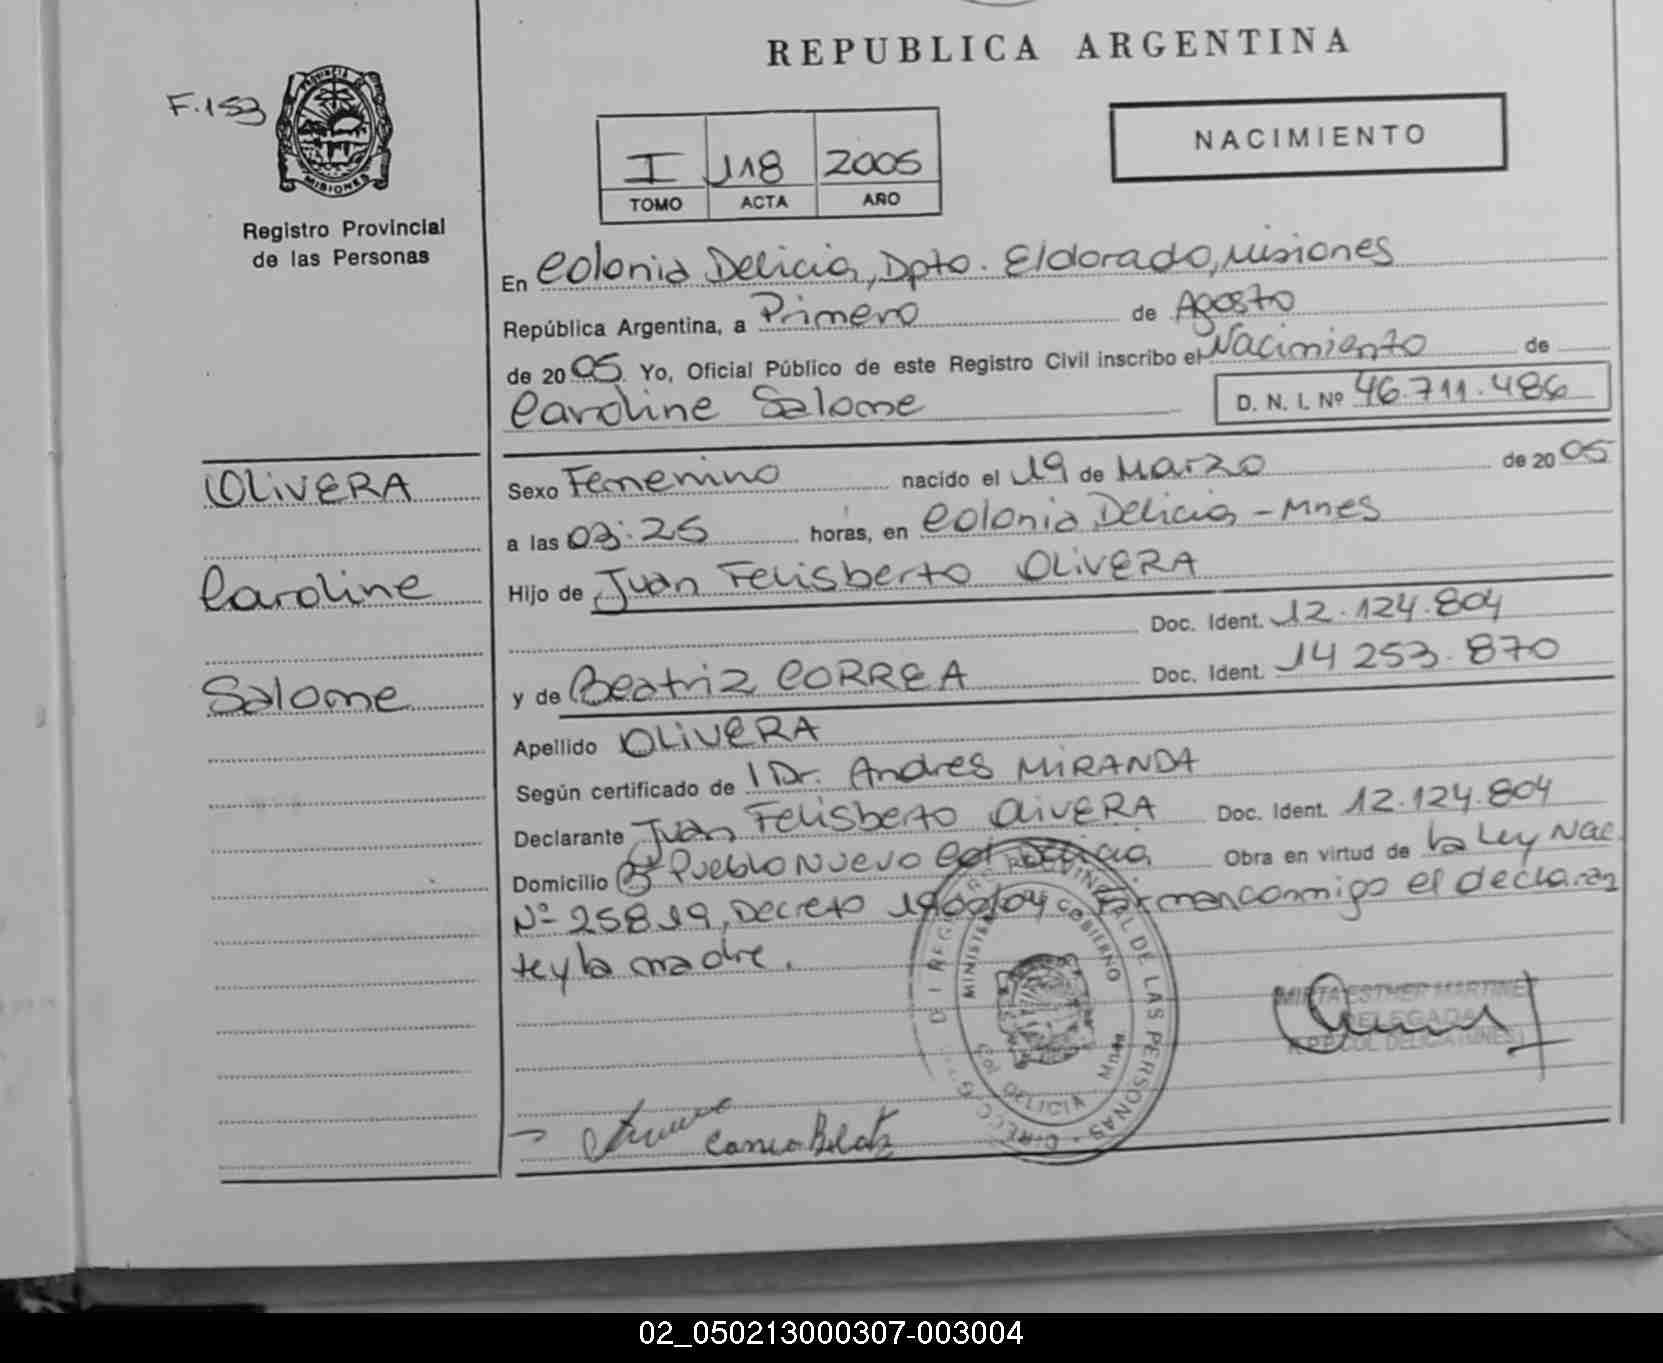 REPUBLICA ARGENTINA
F.153
PROVINCIA DE
MISIONES
Registro Provincial
de las Personas
I 118 2005
TOMO ACTA AÑO
NACIMIENTO
En Colonia Delicia, Dpto. Eldorado, Misiones
República Argentina, a Primero de Agosto
de 2005. Yo, Oficial Público de este Registro Civil inscribo el Nacimiento de
Caroline Salome D. N. I. Nº 46.711.486
OLIVERA
Caroline
Salome
Sexo Femenino nacido el 19 de Marzo de 2005
a las 03:25 horas, en Colonia Delicia - Mnes
Hijo de Juan Felisberto OLIVERA
Doc. Ident. 12.124.804
y de Beatriz CORREA Doc. Ident. 14 253.870
Apellido OLIVERA
Según certificado de l Dr. Andres MIRANDA
Declarante Juan Felisberto OLIVERA Doc. Ident. 12.124.804
Domicilio Bº Pueblo Nuevo Col. Delicia Obra en virtud de la Ley Nac.
Nº 25819, Decreto 1900/04. Firman conmigo el declaran
te y la madre.
PROVINCIAL DE LAS PERSONAS
GOBIERNO
COL. DELICIA
MIRTA ESTHER MARTINEZ
DELEGADA
R.P.P. COL. DELICIA (MNES)
Correa Beatriz
02_050213000307-003004